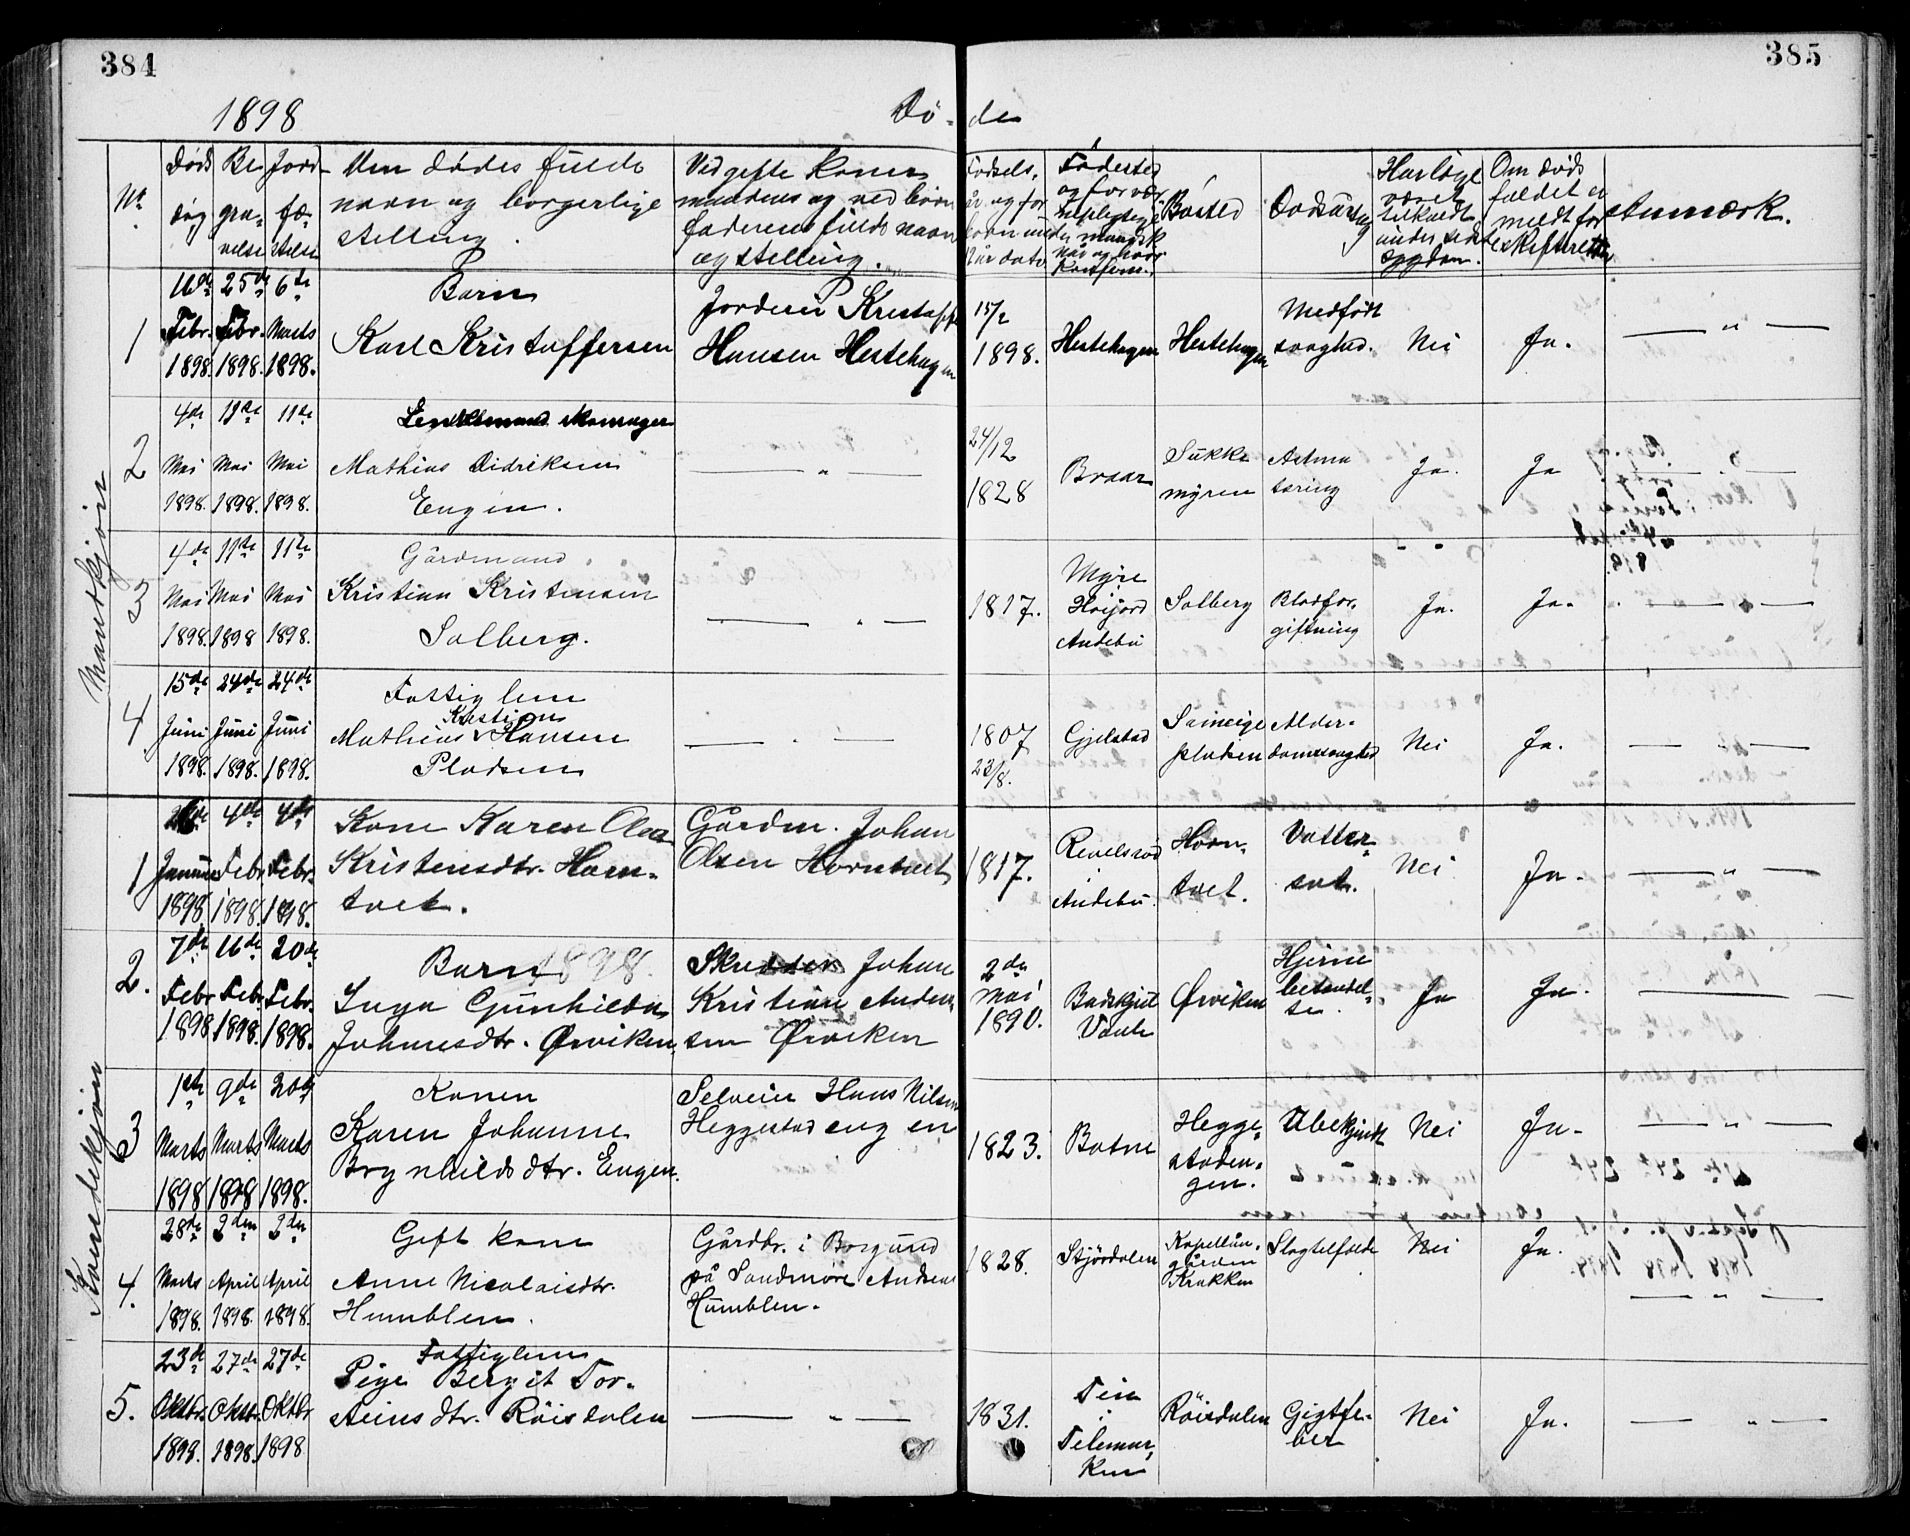 384
385
1898
Dö-de
No.
Döds dag
Be gra- velse
Jord- fæ- stelse
Den dödes fulde
navn og borgerlige
stilling.
Ved gifte koner
mandens og ved börn
faderens fulde navn
og stilling.
Födsels-
år og for
börn under
Födested
Bosted
Dödsårsag
Har læge
været
tilkaldt
under sidste
sygdom.
Om döds
faldet er
meldt for
skifteretten
Anmærk.
Mandkjön
1
16de Febr. 1898.
25de Febr. 1898.
6te Marts 1898.
Barn
Karl Kristoffersen
Jordeier Kristoffer
Hansen Hestehagen
15/2
1898.
Hestehagen
Hestehagen
Medfödt
svaghed.
Nei
Ja.
— " —
2
4de Mai 1898.
11de Mai 1898.
11de Mai 1898.
Mathias Didriksen
Engen.
— " —
24/12
1828
Braar
Sukke
myren
Astma
tæring
Ja.
Ja
3
4de Mai 1898.
11te Mai 1898
11te Mai 1898.
Gårdmand
Kristian Kristensen
Solberg.
— " —
1817.
Myre
Höijord
Andebu
Solberg
Blodfor-
giftning
Ja.
Ja.
— " —
4
15de Juni 1898.
24de Juni 1898.
24de Juni 1898.
Fattiglem
Kristian
Mathias Hansen
Pladsen
— " —
1807
23/8.
Gjelstad
pladsen
Alder-
domssvaghed
Nei
Ja.
— " —
Kvindekjön
1
Januar 1898
4de Febr. 1898.
4de Febr. 1898.
Kone Karen Olea
Kristensdtr. Horn-
tvet.
Gårdm. Johan
Olsen Horntvet
1817.
Andebu.
Horn-
tvet.
Vatter-
sot.
Nei
Ja.
— " —
2.
7de Febr 1898
16de Febr. 1898.
20de Febr. 1898.
Barn 1898.
Inga Gunhilda
Johansdtr. Örviken
Skredder Johan
Kristian Ander-
sen Örviken
2de
Mai
1890.
Vaale
Örviken
Hjerne
betændel-
se.
Ja
Ja.
3
1ste Marts 1898
9de Marts 1898
20de Marts 1898.
Konen
Karen Johanne
Brynhildsdtr. Engen.
Selveier Hans Nilsen
Heggestadengen
1823.
Botne
Hegge-
staden-
gen.
Ubekjendt
Nei
Ja.
— " —
4.
28de Marts 1898.
2den April 1898.
2den April 1898.
Gift kone
Anne Nicolaisdtr.
Humblen.
Gårdbr. i Borgund
på Söndmöre Andreas
Humblen.
1828.
Stjördalen
Kapellan-
gården
Krakken
Slagtelfælde
Nei
Ja.
— " —
5.
23de Oktbr. 1898.
27de Oktbr. 1898.
27de Oktbr 1898
Fattiglem
Pige Bergit Tor-
steinsdtr. Röisdalen
— " —
1831.
Tin
i
Telemar-
ken
Röisdalen
Gigtfe-
ber
Nei
Ja.
— " —